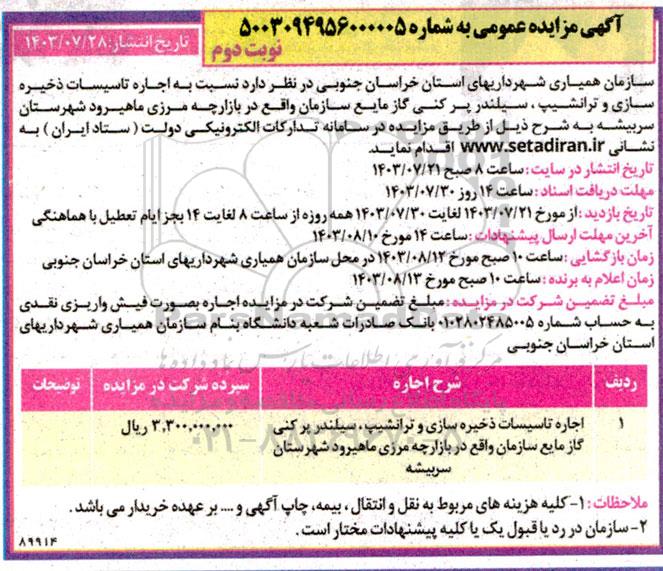 آگهی مزایده عمومی به شماره ۵۰۰۳۰۹۴۹۵۶۰۰۰۰۰۵
نوبت دوم
تاریخ انتشار: ۱۴۰۳/۰۷/۲۸
سازمان همیاری شهرداریهای استان خراسان جنوبی در نظر دارد نسبت به اجاره تاسیسات ذخیره
سازی و ترانشیپ ، سیلندر پر کنی گاز مایع سازمان واقع در بازارچه مرزی ماهیرود شهرستان
سربیشه به شرح ذیل از طریق مزایده در سامانه تدارکات الکترونیکی دولت ( ستاد ایران ) به
نشانی www.setadiran.ir اقدام نماید.
تاریخ انتشار در سایت : ساعت ۸ صبح ۱۴۰۳/۰۷/۲۱
مهلت دریافت اسناد : ساعت ۱۴ روز ۱۴۰۳/۰۷/۳۰
تاریخ بازدید : از مورخ ۱۴۰۳/۰۷/۲۱ لغایت ۱۴۰۳/۰۷/۳۰ همه روزه از ساعت ۸ لغایت ۱۴ بجز ایام تعطیل با هماهنگی
آخرین مهلت ارسال پیشنهادات : ساعت ۱۴ مورخ ۱۴۰۳/۰۸/۱۰
زمان بازگشایی : ساعت ۱۰ صبح مورخ ۱۴۰۳/۰۸/۱۲ در محل سازمان همیاری شهرداریهای استان خراسان جنوبی
زمان اعلام به برنده : ساعت ۱۰ صبح مورخ ۱۴۰۳/۰۸/۱۳
مبلغ تضمین شرکت در مزایده : مبلغ تضمین شرکت در مزایده اجاره بصورت فیش واریزی نقدی
به حساب شماره ۰۱۰۲۸۰۲۴۸۵۰۰۵ بانک صادرات شعبه دانشگاه بنام سازمان همیاری شهرداریهای
استان خراسان جنوبی
ردیف شرح اجاره سپرده شرکت در مزایده توضیحات
۱ اجاره تاسیسات ذخیره سازی و ترانشیپ ، سیلندر پر کنی ۳,۳۰۰,۰۰۰,۰۰۰ ریال
گاز مایع سازمان واقع در بازارچه مرزی ماهیرود شهرستان
سربیشه
ملاحظات : ۱- کلیه هزینه های مربوط به نقل و انتقال ، بیمه، چاپ آگهی و .... بر عهده خریدار می باشد .
۲- سازمان در رد یا قبول یک یا کلیه پیشنهادات مختار است .
۸۹۹۱۴